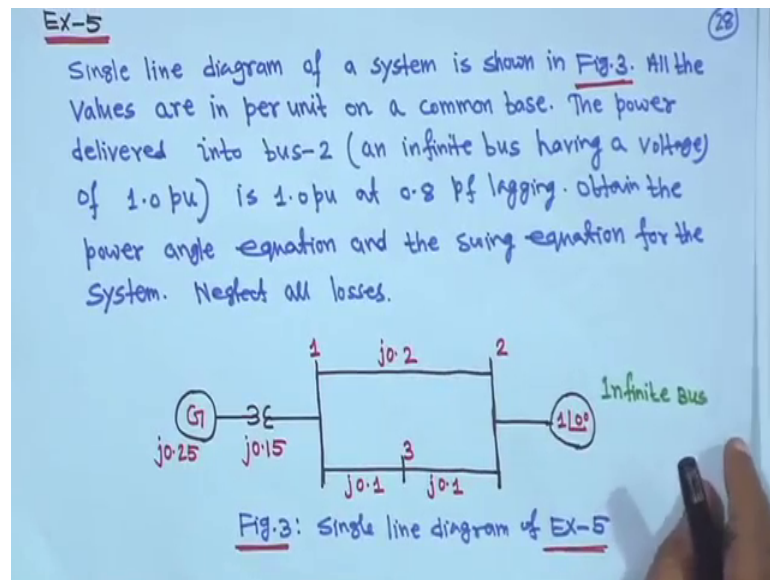 EX-5
28
Single line diagram of a system is shown in Fig.3. All the
values are in per unit on a common base. The power
delivered into bus-2 (an infinite bus having a voltage)
of 1.0 pu) is 1.0 pu at 0.8 pf lagging. Obtain the
power angle equation and the swing equation for the
system. Neglect all losses.
1 j0.2 2
Infinite Bus
G 1∠0°
j0.25 j0.15 3
j0.1 j0.1
Fig.3: Single line diagram of EX-5